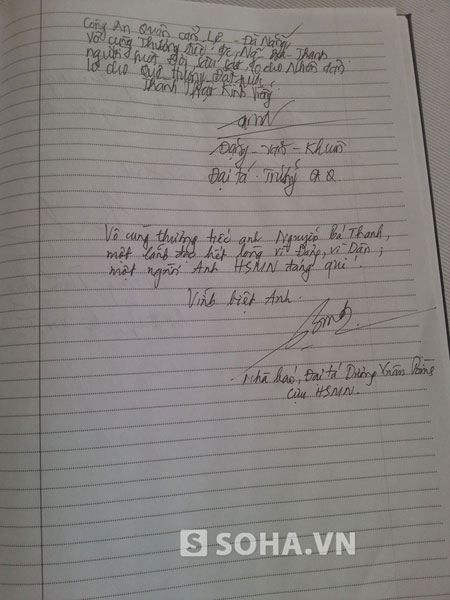 Công An Quận Cẩm Lệ - Đà Nẵng
Vô cùng thương tiếc đ/c Ng Bá Thanh
người suốt đời sâu sắc lo cho nhân dân
lo cho Quê hương Đất nước
Thành thật kính viếng
Đặng - Văn - Khuê
Đại tá . Trưởng CAQ.
Vô cùng thương tiếc anh Nguyễn Bá Thanh,
một lãnh đạo hết lòng vì Đảng, vì Dân;
một người Anh HSMN đáng quí.
Vĩnh biệt Anh.
Nhà báo, Đại tá Dương Xuân
Cựu HSMN.
S SOHA.VN